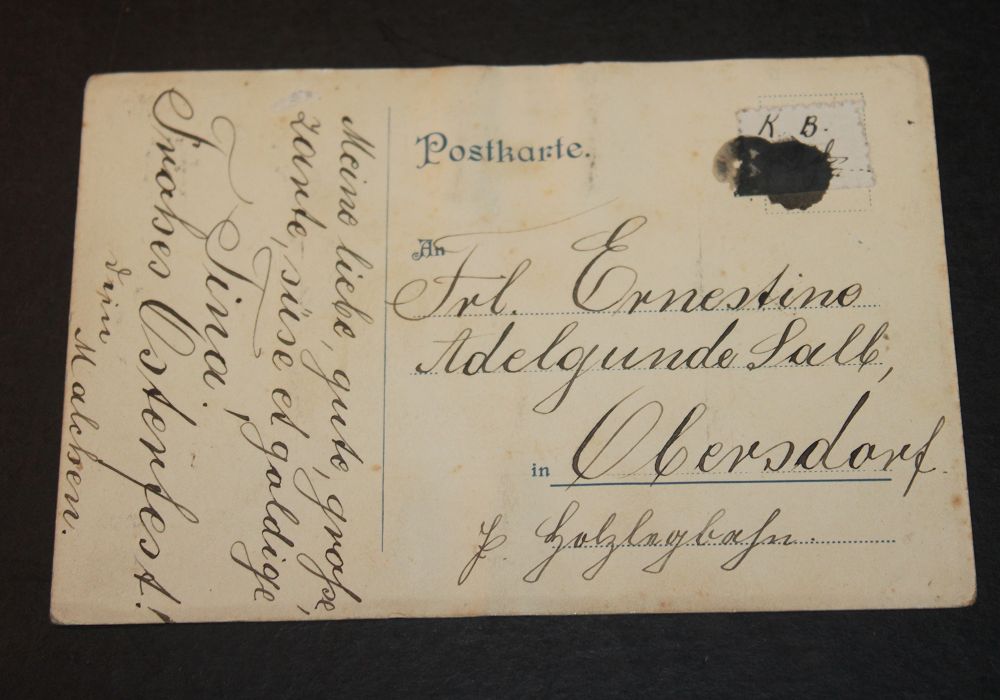 Meine liebe, gute, große,
zarte, süse et goldige
Tina!
Frohes Osterfest!
Dein
Malchen.
Postkarte.
K. B.
An
Frl. Ernestine
Adelgunde Salb,
in Obersdorf
p. Holzlegbahn.